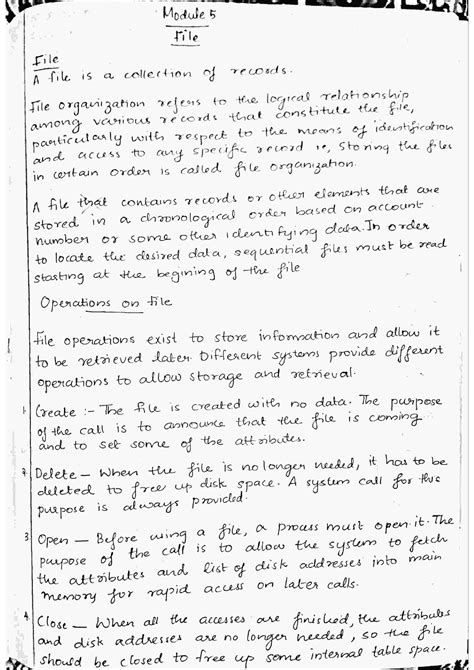 Module 5
File
File
A file is a collection of records.
File organization refers to the logical relationship
among various records that constitute the file,
particularly with respect to the means of identification
and access to any specific record ie, Storing the files
in certain order is called file organization.
A file that contains records or other elements that are
stored in a chronological order based on account
number or some other identifying data. In order
to locate the desired data, sequential files must be read
starting at the begining of the file
Operations on file
File operations exist to store information and allow it
to be retrieved later. Different systems provide different
operations to allow storage and retrieval.
1. Create :- The file is created with no data. The purpose
of the call is to announce that the file is coming
and to set some of the attributes.
2. Delete — When the file is no longer needed, it has to be
deleted to free up disk space. A system call for this
purpose is always provided.
3. Open — Before using a file, a process must open it. The
purpose of the call is to allow the system to fetch
the attributes and list of disk addresses into main
memory for rapid access on later calls.
4. Close — When all the accesses are finished, the attributes
and disk addresses are no longer needed, so the file
should be closed to free up some internal table space.